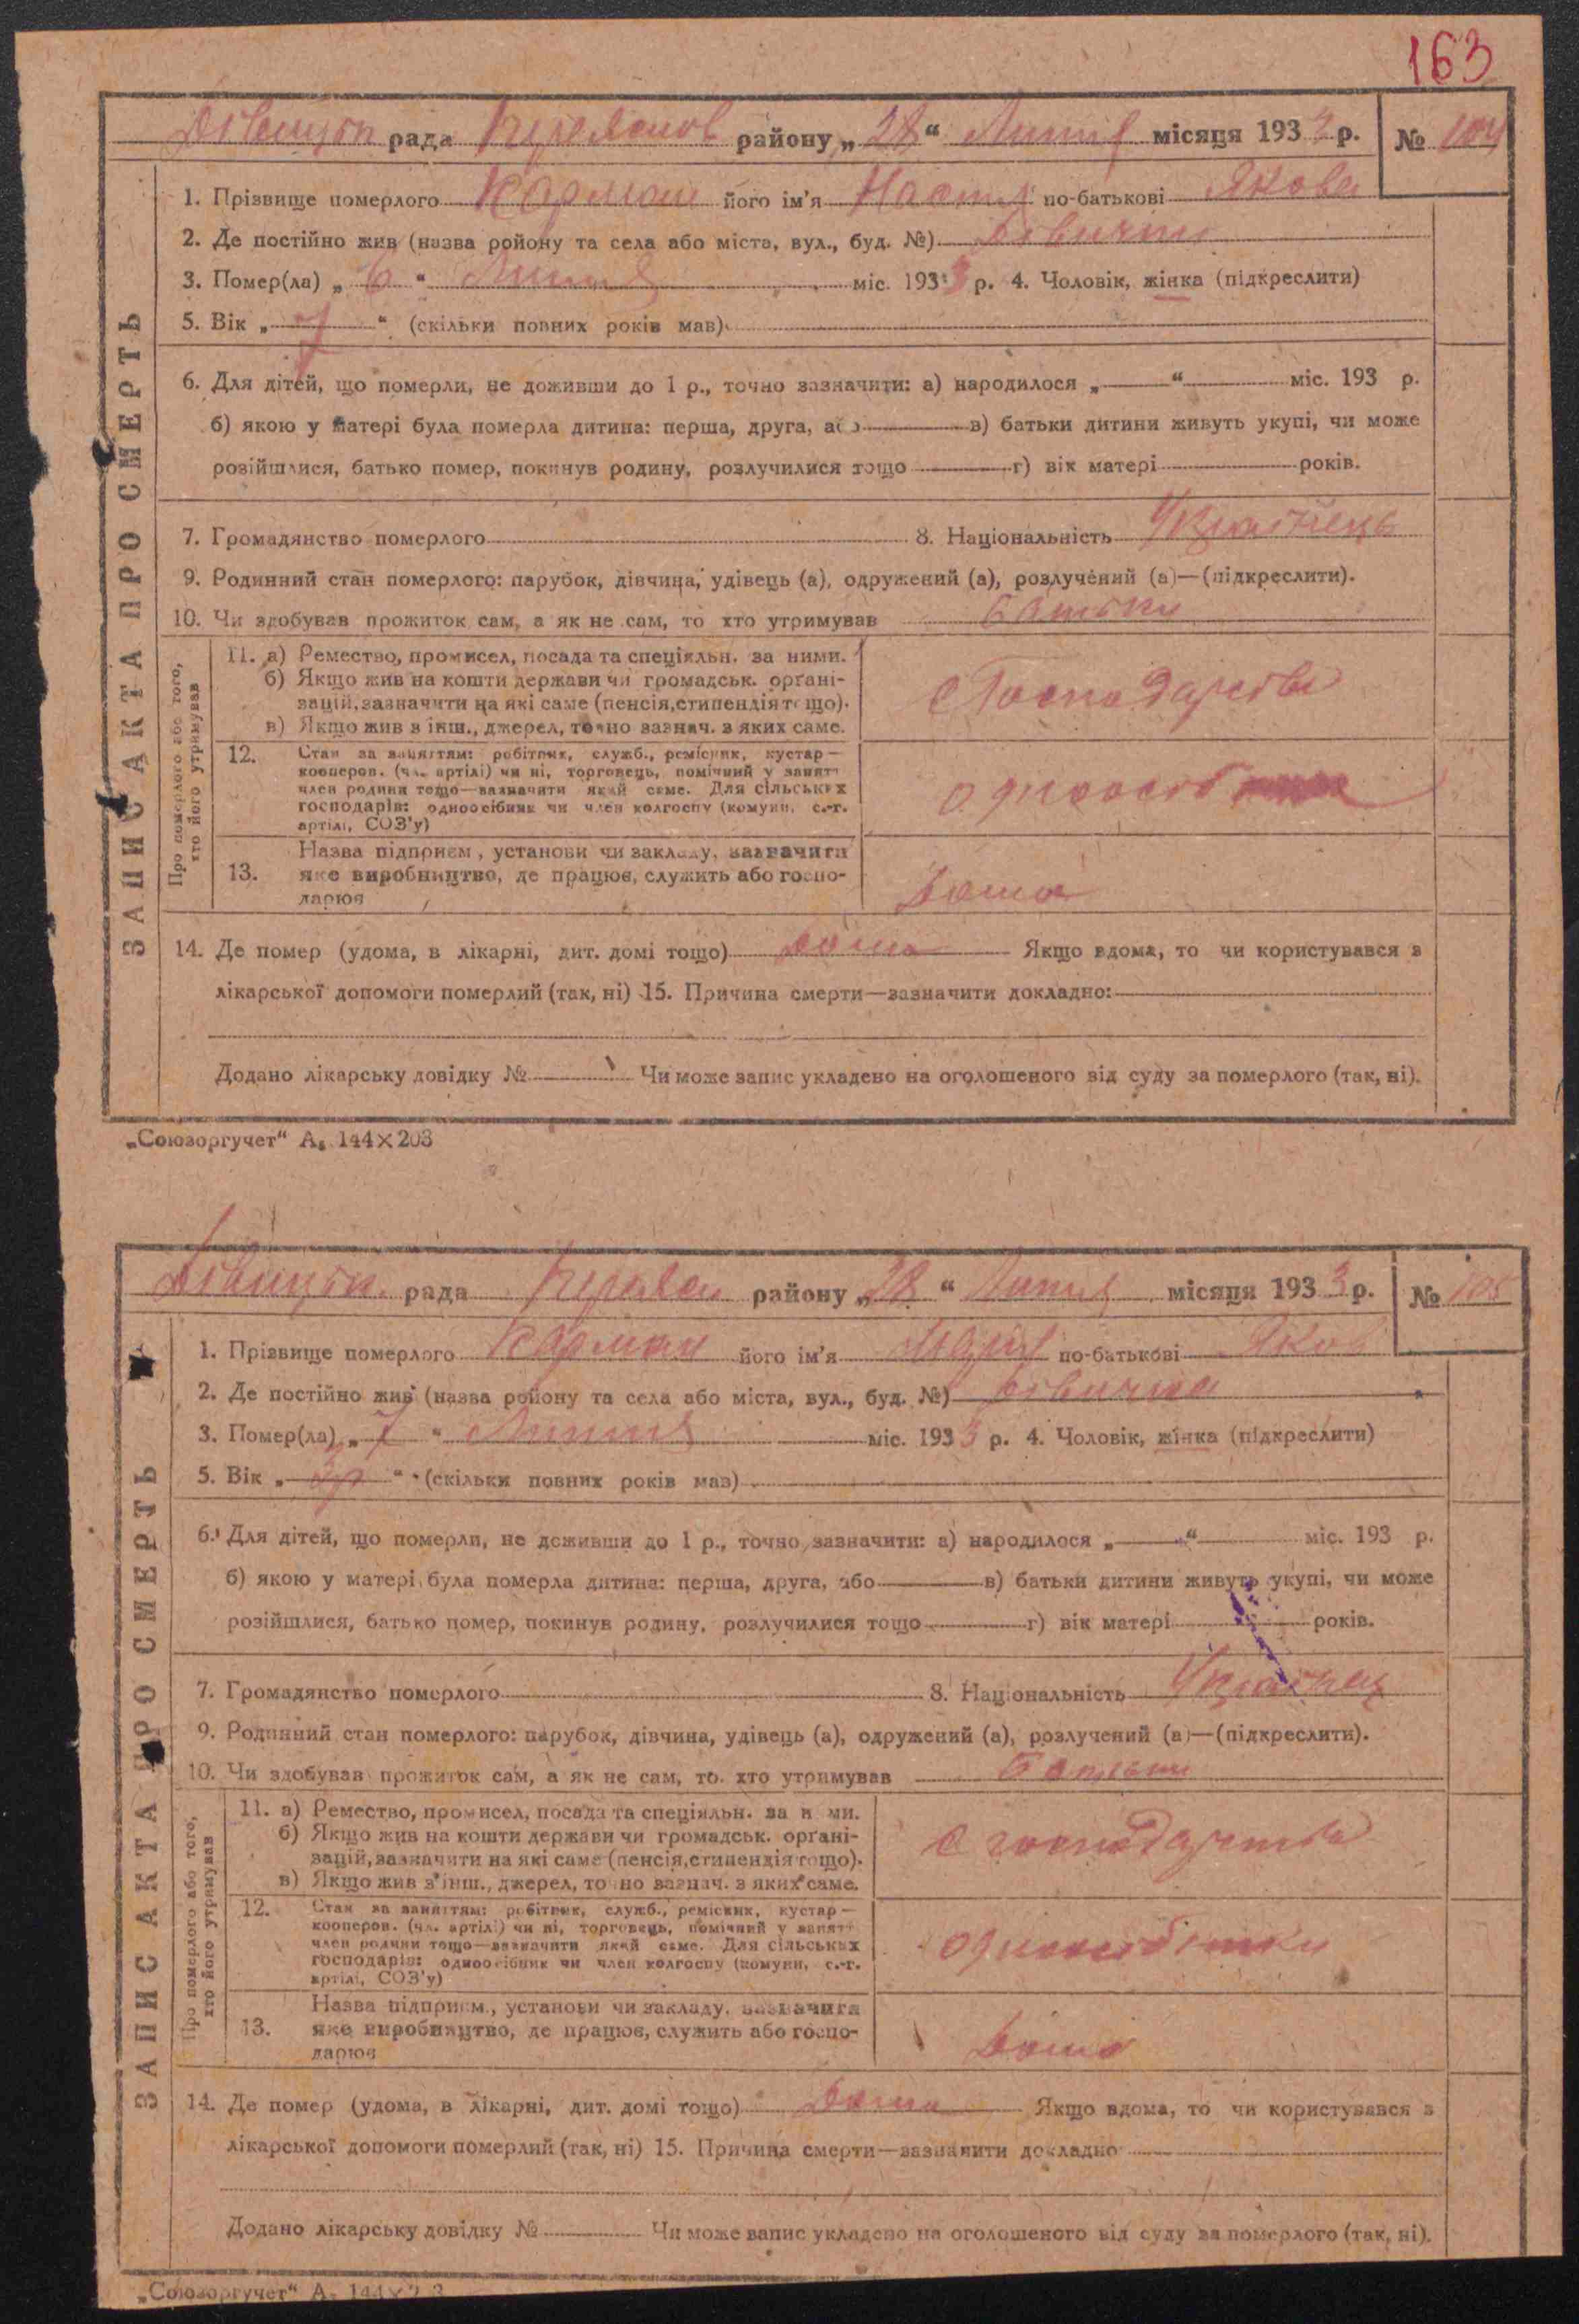 163
Дівицьк рада Переяслов району „28“ Липня місяця 1933 р. № 104
1. Прізвище померлого Кармаш його ім'я Настя по-батькові Якова
2. Де постійно жив (назва ройону та села або міста, вул., буд. №) Дівички
3. Помер(ла) „6“ Липня міс. 1933 р. 4. Чоловік, жінка (підкреслити)
5. Вік „7“ (скільки повних років мав)
6. Для дітей, що померли, не доживши до 1 р., точно зазначити: а) народилося „ “ міс. 193 р.
б) якою у матері була померла дитина: перша, друга, або в) батьки дитини живуть укупі, чи може
розійшлися, батько помер, покинув родину, розлучилися тощо г) вік матері років.
7. Громадянство померлого 8. Національність Українець
9. Родинний стан померлого: парубок, дівчина, удівець (а), одружений (а), розлучений (а)—(підкреслити).
10. Чи здобував прожиток сам, а як не сам, то хто утримував батьки
ЗАПИС АКТА ПРО СМЕРТЬ
Про померлого або того, хто його утримував
11. а) Ремество, промисел, посада та спеціяльн. за ними.
б) Якщо жив на кошти держави чи громадськ. орґані-
зацій, зазначити на які саме (пенсія, стипендія тощо).
в) Якщо жив з інш., джерел, точно зазнач. з яких саме.
с Господарства
12. Стан за заняттям: робітник, служб., ремісник, кустар—
кооперов. (чл. артілі) чи ні, торговець, помічний у занятт
член родини тощо—зазначити який саме. Для сільських
господарів: одноосібник чи член колгоспу (комуни, с.-г.
артілі, СОЗ'у)
одноосіб
Назва підприєм., установи чи закладу, зазначити
13. яке виробництво, де працює, служить або госпо-
дарює
Дома
14. Де помер (удома, в лікарні, дит. домі тощо) дома Якщо вдома, то чи користувався з
лікарської допомоги померлий (так, ні) 15. Причина смерти—зазначити докладно:
Додано лікарську довідку № Чи може запис укладено на оголошеного від суду за померлого (так, ні).
„Союзоргучет“ А₆ 144×203
Дівицьк. рада Переясл району „28“ Липня місяця 1933 р. № 105
1. Прізвище померлого Кармаш його ім'я Марія по-батькові Яков
2. Де постійно жив (назва ройону та села або міста, вул., буд. №) Дівичка
3. Помер(ла) „7“ Липня міс. 1933 р. 4. Чоловік, жінка (підкреслити)
5. Вік „3р“ (скільки повних років мав)
6. Для дітей, що померли, не доживши до 1 р., точно зазначити: а) народилося „ “ міс. 193 р.
б) якою у матері була померла дитина: перша, друга, або в) батьки дитини живуть укупі, чи може
розійшлися, батько помер, покинув родину, розлучилися тощо г) вік матері років.
7. Громадянство померлого 8. Національність Українец
9. Родинний стан померлого: парубок, дівчина, удівець (а), одружений (а), розлучений (а)—(підкреслити).
10. Чи здобував прожиток сам, а як не сам, то хто утримував Батьки
ЗАПИС АКТА ПРО СМЕРТЬ
Про померлого або того, хто його утримував
11. а) Ремество, промисел, посада та спеціяльн. за н ми.
б) Якщо жив на кошти держави чи громадськ. орґані-
зацій, зазначити на які саме (пенсія, стипендія тощо).
в) Якщо жив з інш., джерел, точно зазнач. з яких саме.
с господарства
12. Стан за заняттям: робітник, служб., ремісник, кустар—
кооперов. (чл. артілі) чи ні, торговець, помічний у занятт
член родини тощо—зазначити який саме. Для сільських
господарів: одноосібник чи член колгоспу (комуни, с.-г.
артілі, СОЗ'у)
одноосібники
Назва підприєм., установи чи закладу, зазначити
13. яке виробництво, де працює, служить або госпо-
дарює
Дома
14. Де помер (удома, в лікарні, дит. домі тощо) Дома Якщо вдома, то чи користувався з
лікарської допомоги померлий (так, ні) 15. Причина смерти—зазначити докладно
Додано лікарську довідку № Чи може запис укладено на оголошеного від суду за померлого (так, ні).
„Союзоргучет“ А₅ 144×2 3